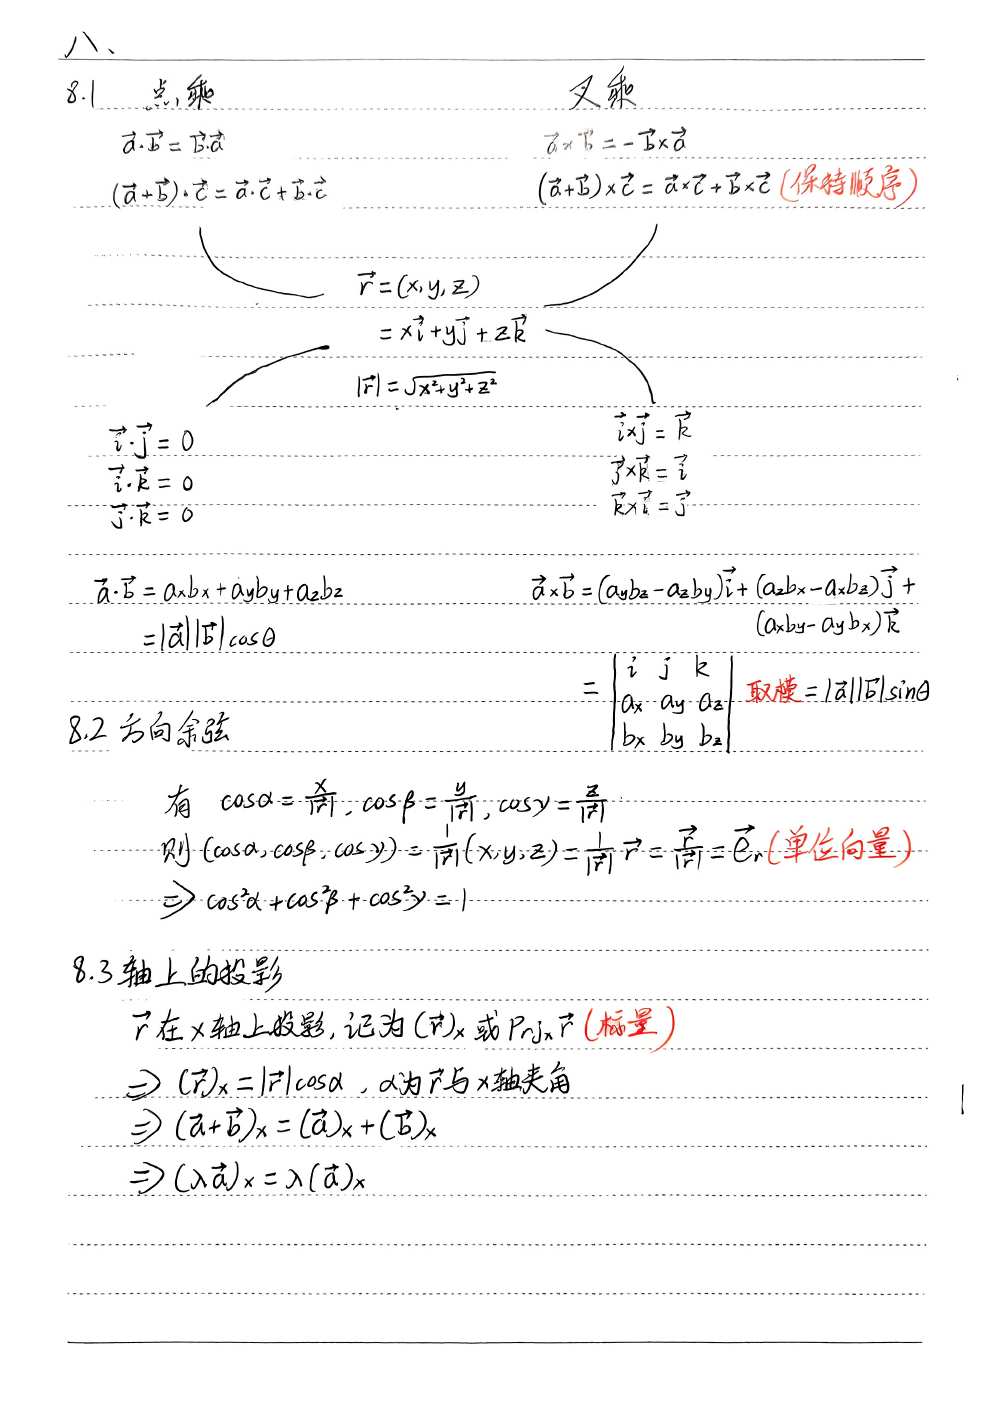 八、
8.1 点乘 叉乘
a⃗·b⃗ = b⃗·a⃗ a⃗×b⃗ = -b⃗×a⃗
(a⃗+b⃗)·c⃗ = a⃗·c⃗ + b⃗·c⃗ (a⃗+b⃗)×c⃗ = a⃗×c⃗ + b⃗×c⃗ (保持顺序)
r⃗ = (x, y, z)
= xi⃗ + yj⃗ + zk⃗
|r⃗| = √(x²+y²+z²)
i⃗·j⃗ = 0 i⃗×j⃗ = k⃗
i⃗·k⃗ = 0 j⃗×k⃗ = i⃗
j⃗·k⃗ = 0 k⃗×i⃗ = j⃗
a⃗·b⃗ = axbx + ayby + azbz a⃗×b⃗ = (aybz - azby)i⃗ + (azbx - axbz)j⃗ +
(axby - aybx)k⃗
= |a⃗||b⃗|cosθ
= | i j k |
| ax ay az | 取模 = |a⃗||b⃗|sinθ
| bx by bz |
8.2 方向余弦
有 cosα = x/|r⃗|, cosβ = y/|r⃗|, cosγ = z/|r⃗|
则 (cosα, cosβ, cosγ) = 1/|r⃗| (x, y, z) = 1/|r⃗| r⃗ = r⃗/|r⃗| = e⃗r (单位向量)
⇒ cos²α + cos²β + cos²γ = 1
8.3 轴上的投影
r⃗ 在 x 轴上投影, 记为 (r⃗)x 或 Prjx r⃗ (标量)
⇒ (r⃗)x = |r⃗|cosα, α为r⃗与x轴夹角
⇒ (a⃗+b⃗)x = (a⃗)x + (b⃗)x
⇒ (λa⃗)x = λ(a⃗)x